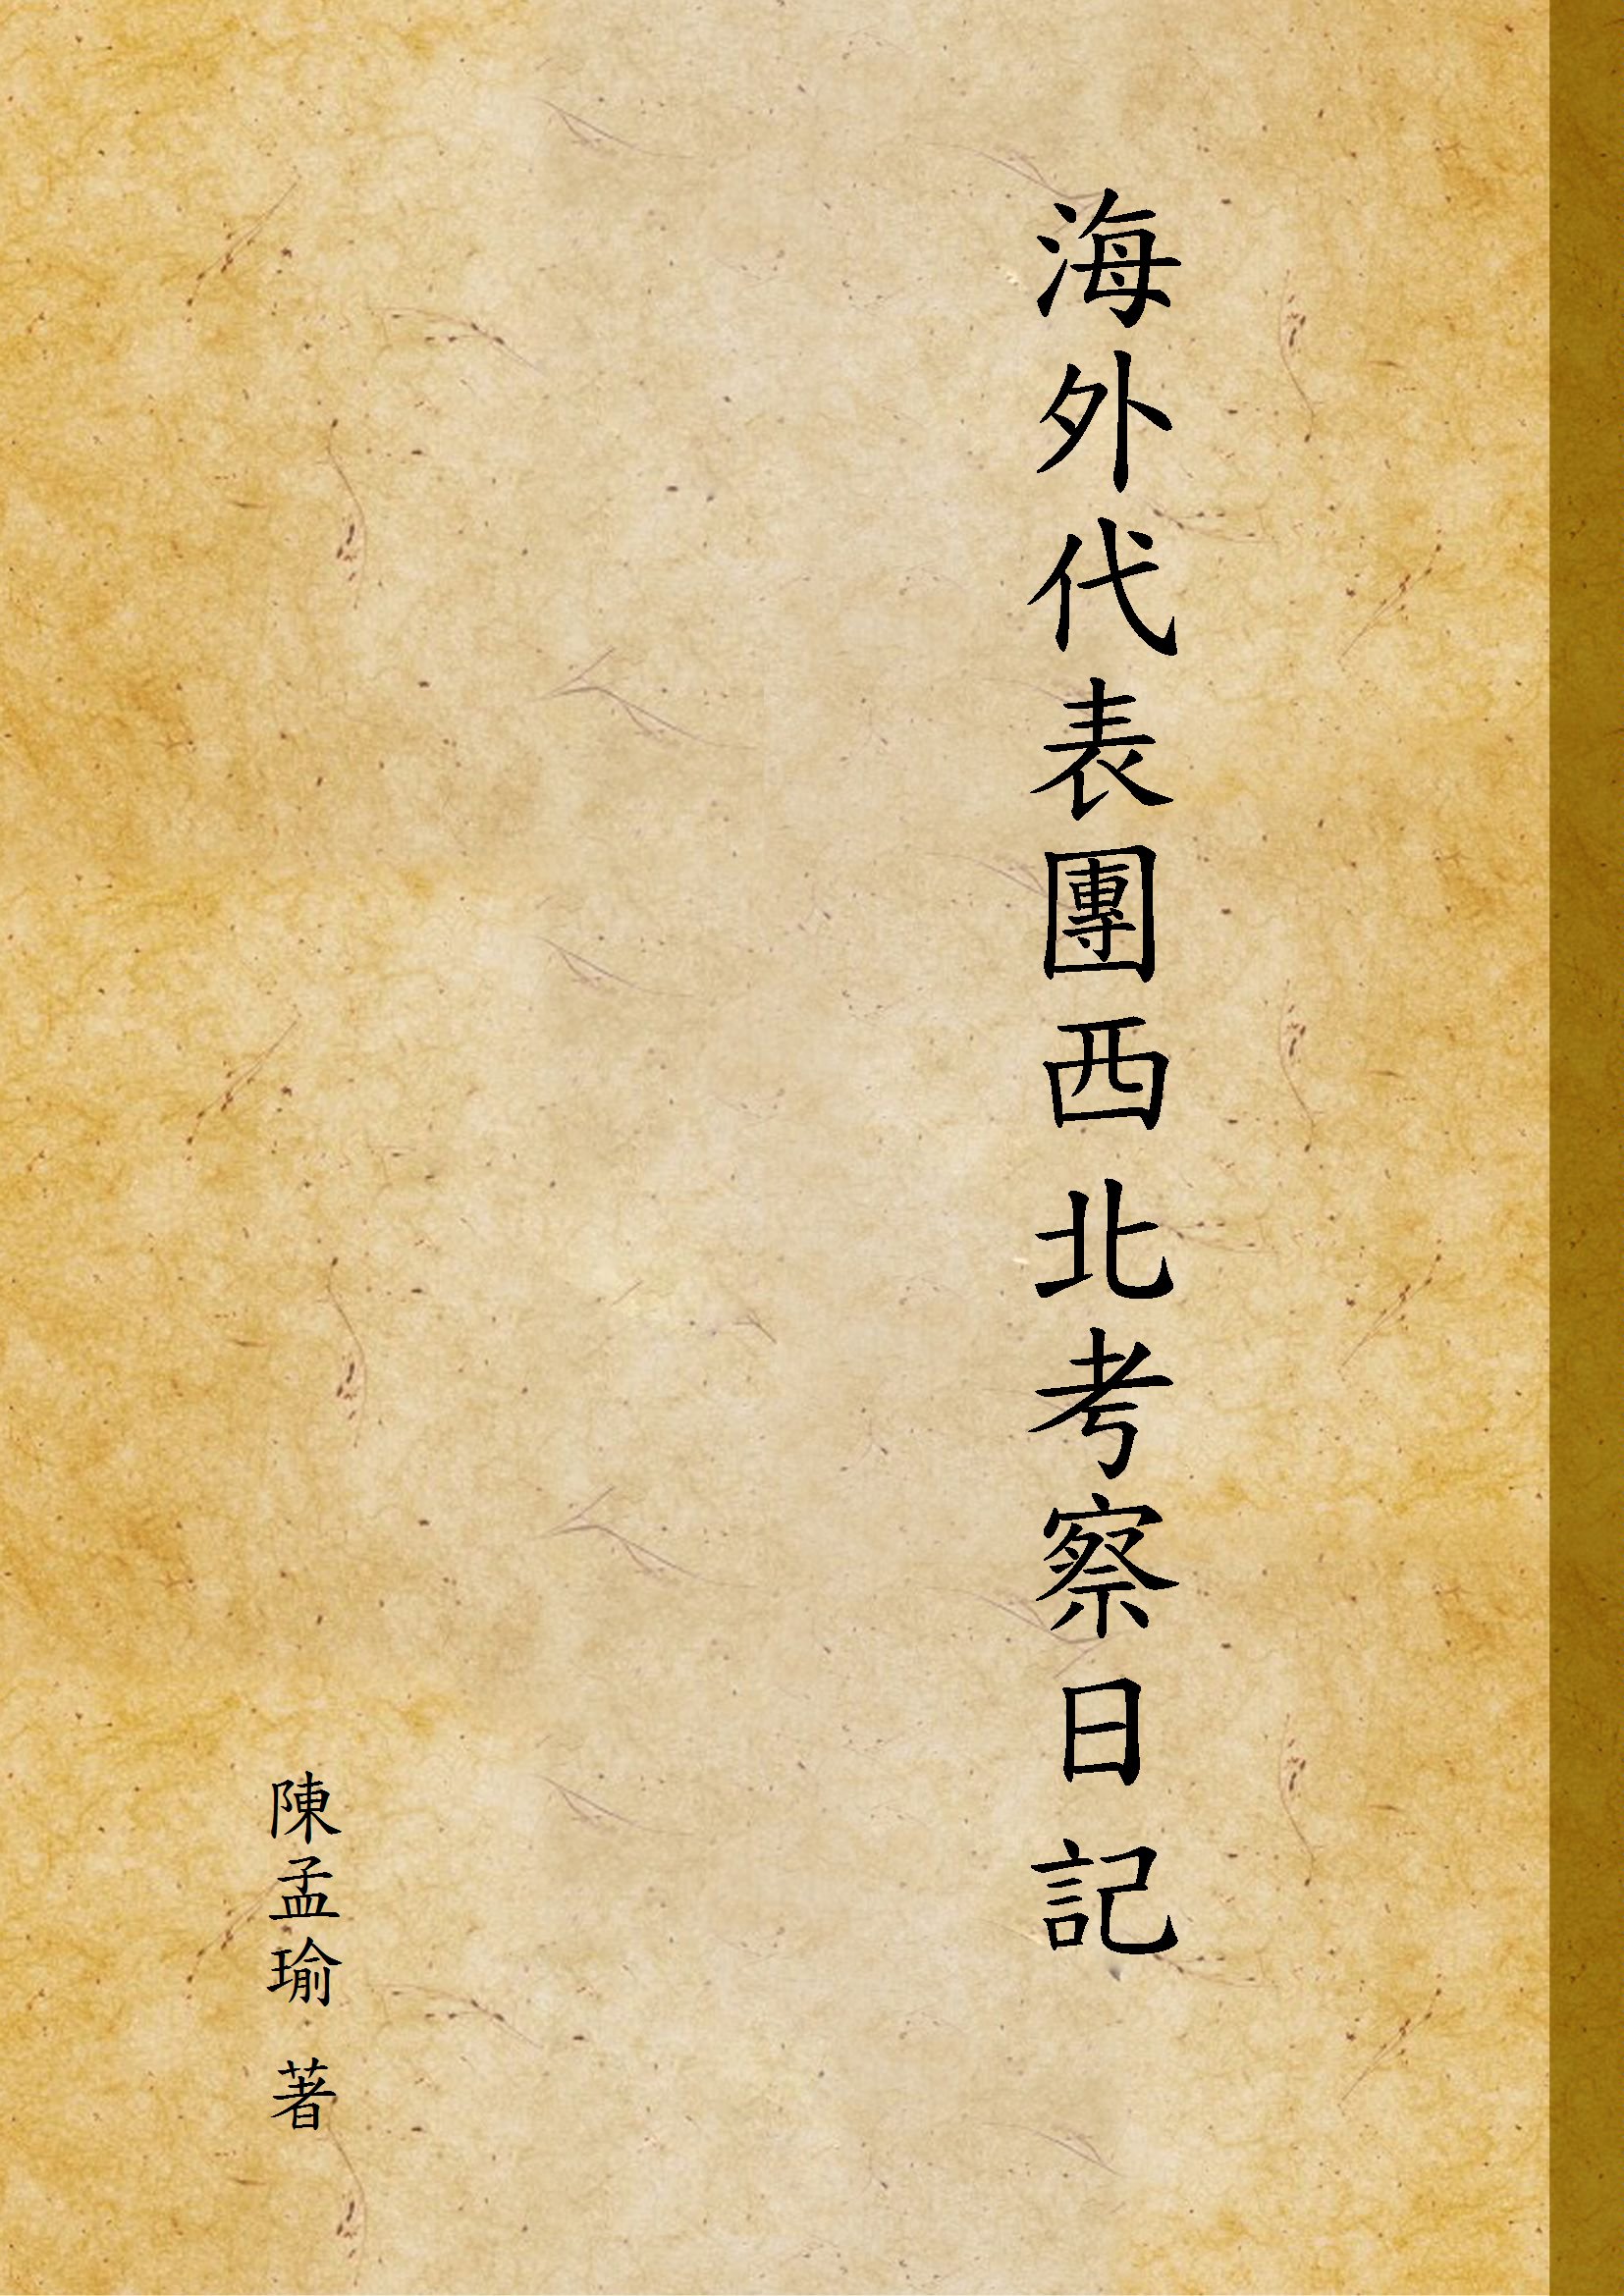 海外代表團西北考察日記
陳孟瑜 著